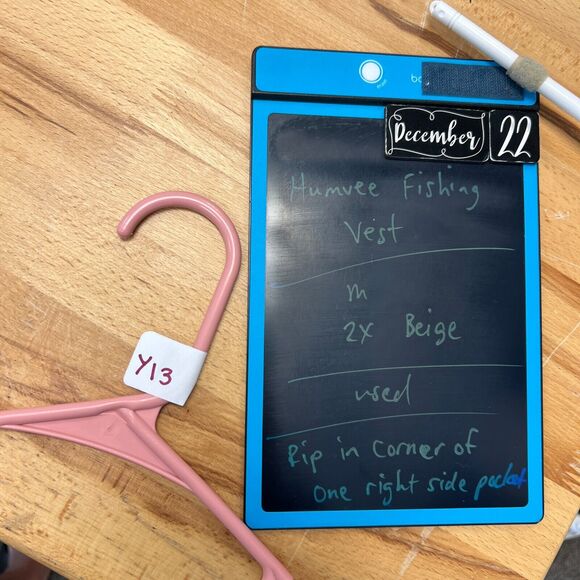 December 22
Humvee Fishing
Vest
m
2X Beige
used
Rip in Corner of
One right side pocket
Y13